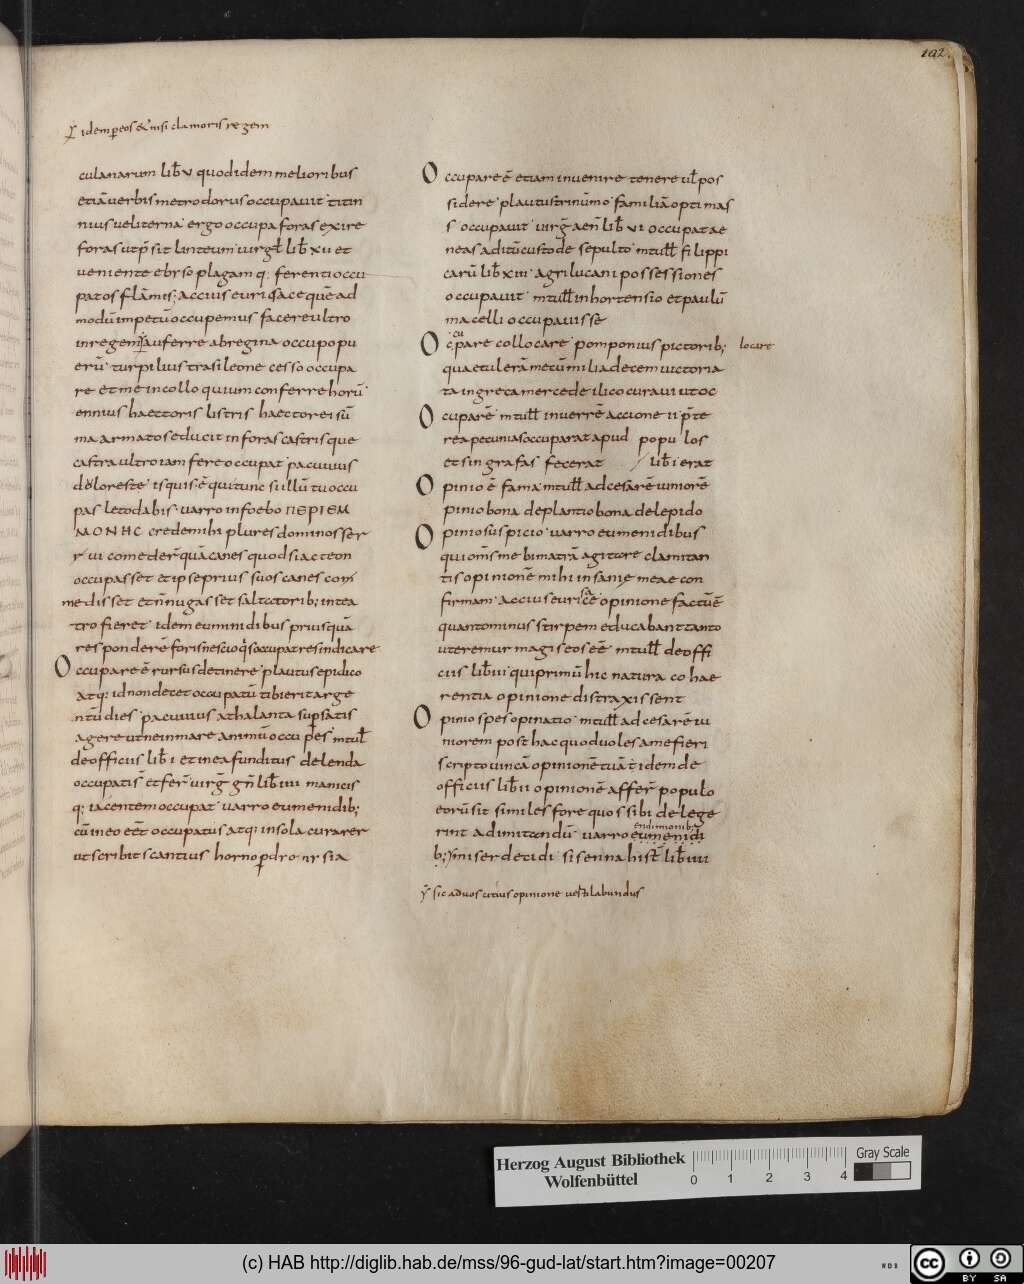 102.
idem per eos & nisi clamoris regem
culanarum lib̄ v quodidem melioribus
etiā verbis metrodorus occupavit titin
nius veliterna ergo occupa foras exire
foras ut p̄ sit linteum virgł lib̄ xii et
veniente ebrso plagam q; ferenti occu
patos flāmis; accius eurisace quē ad
modū impetū occupemus facere ultro
in regem auferre ab regina occupo pu
erū turpilius trasileone cesso occupa
re et me in colloquium conferre horū
ennius haectoris listris haector ei sū
ma armatos educit in foras castris que
castra ultro iam fere occupat pacuvius
doloreste is quis ē qui tunc si illū tu occu
pas leto dabis varro infoebo ΠΕΡΙΕΜ
ΜΟΝΗC credemihi plures dominos ser
vi comederē quā canes quod si acteon
occupasset et ipse prius suos canes com
medisset et n̄ nugas set saltatorib; in tea
tro fieret idem euminidibus priusquā
respondere foris nescio q̇s occupat res indicare
Occupare ē rursus detinere plautus epidico
atq; id non decet occupatū tibieritarge
ntū dies pacuvius athalanta sup satis
agere ut ne in mare animū occupes mtuł
de officiis lib̄ i et in ea funditus delenda
occupatis et fer virḡ gn̄ lib̄ iiii manicis
q; iacentem occupat varro eumenidib;
cū in eo eēt occupatus atq; insola curarer
ut scribit scantius horno per dronysia
Occupare ē etiam invenire tenere vł pos
sidere plautus trinūmo familiā optimas
s occupavit virḡ aen̄ lib̄ vi occupat ae
neas aditū custode sepulto mtułł filippi
carū lib̄ xiii agri lucani possessiones
occupavit mtułł in hortensio et paulū
macelli occupavisse
cu
Ocpare collocare pomponius pictorib; locare
quaetulerā mecū milia decem victoria
ta in greca mercede ilico curavi ut oc
Ocuparē mtułł in verrē accione ii p̄te
rea pecunias occuparat apud populos
et singrafas fecerat lib̄ i erat
Opinio ē fama mtułł ad cesarē iuniorē
pinio bona de plantio bona de lepido
Opinio suspicio varro eumenidibus
qui om̄s me bimatrā agitare clamitan
tis opinionē mihi insanie meae con
firmam accius eurisacē opinione factūē
quantominus stirpem educabant tanto
uteremur magis eos eē mtułł de offi
ciis lib̄ iii qui primū hic natura cohae
rentia opinione distraxissent
Opinio spes opinatio mtułł ad cesarē iu
niorem posthac quod voles a me fieri
scripto vincā opinionē tuā idem de
officiis lib̄ ii opinionē affer populo
eorū sit similes fore quos sibi delege
rint ad imitandū varro eumenidi
endimionib;
b; miser decidi sisenna hist lib̄ iiii
sic ad vos citius opinione vestilabundus
Herzog August Bibliothek
Wolfenbüttel
0 1 2 3 4
Gray Scale
(c) HAB http://diglib.hab.de/mss/96-gud-lat/start.htm?image=00207
WDB
cc BY SA